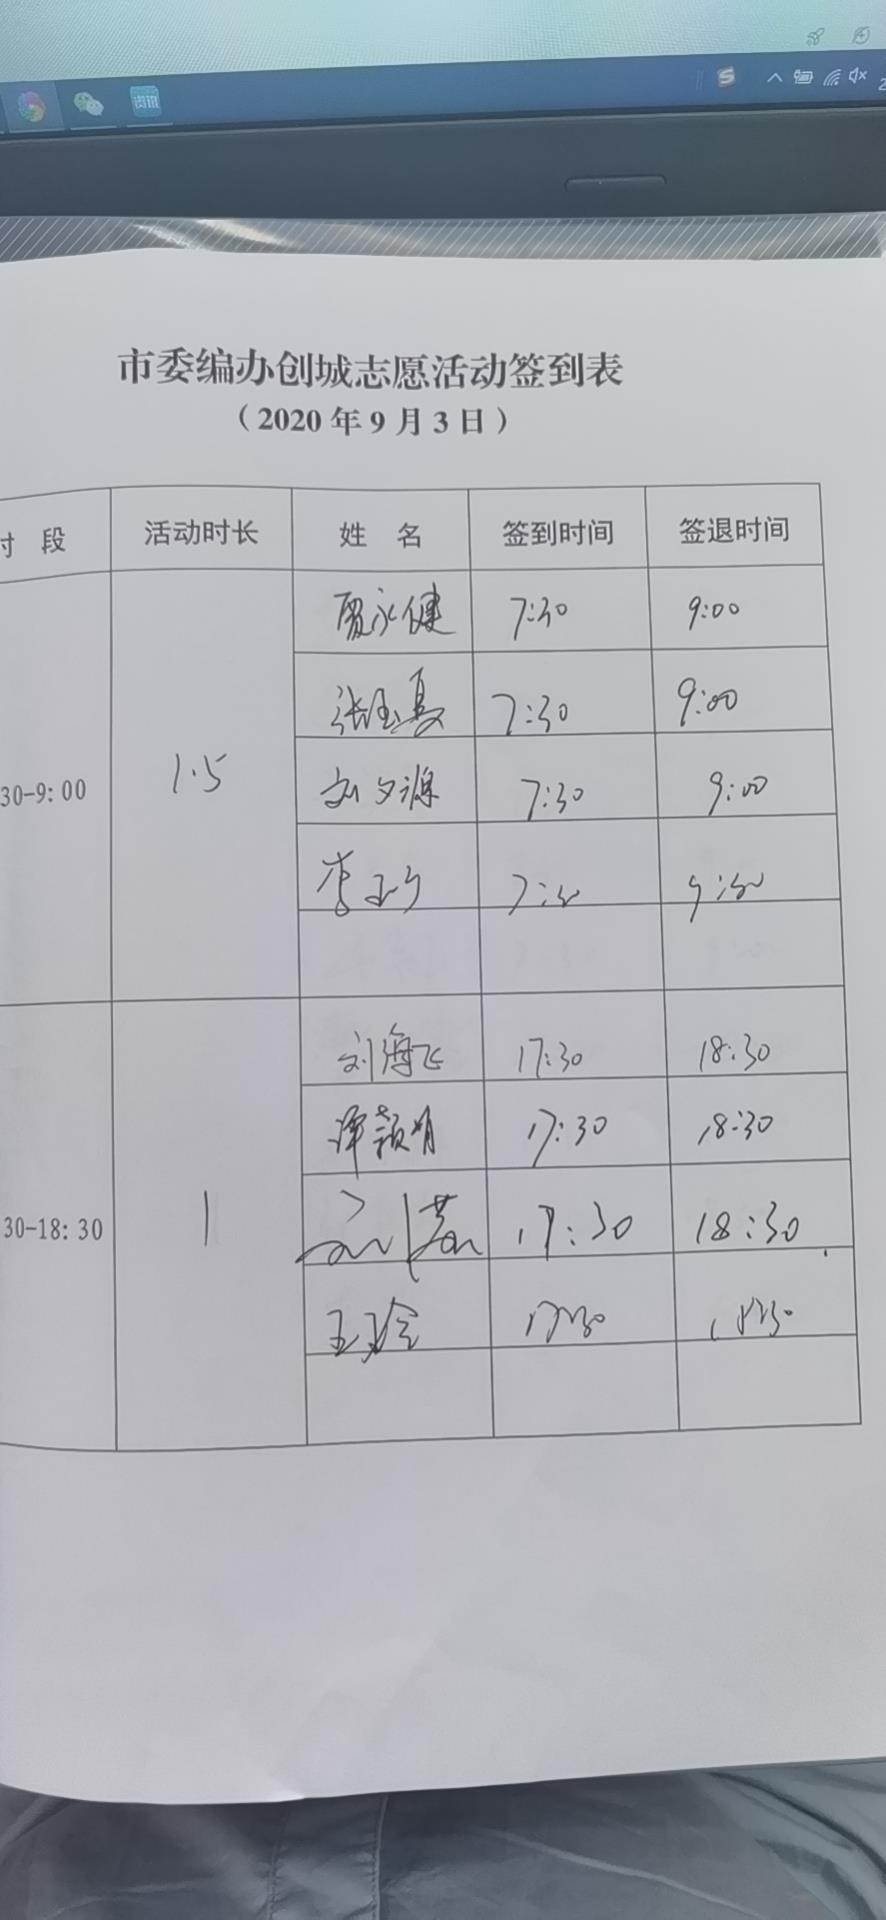 资讯
市委编办创城志愿活动签到表
(2020年9月3日)
时 段 活动时长 姓 名 签到时间 签退时间
30-9:00 1.5
贾永健 7:30 9:00
张玉夏 7:30 9:00
刘夕源 7:30 9:00
李 7:30
30-18:30 1
刘海飞 17:30 18:30
谭颖 17:30 18:30
刘 17:30 18:30
王玲 17:30 18:30